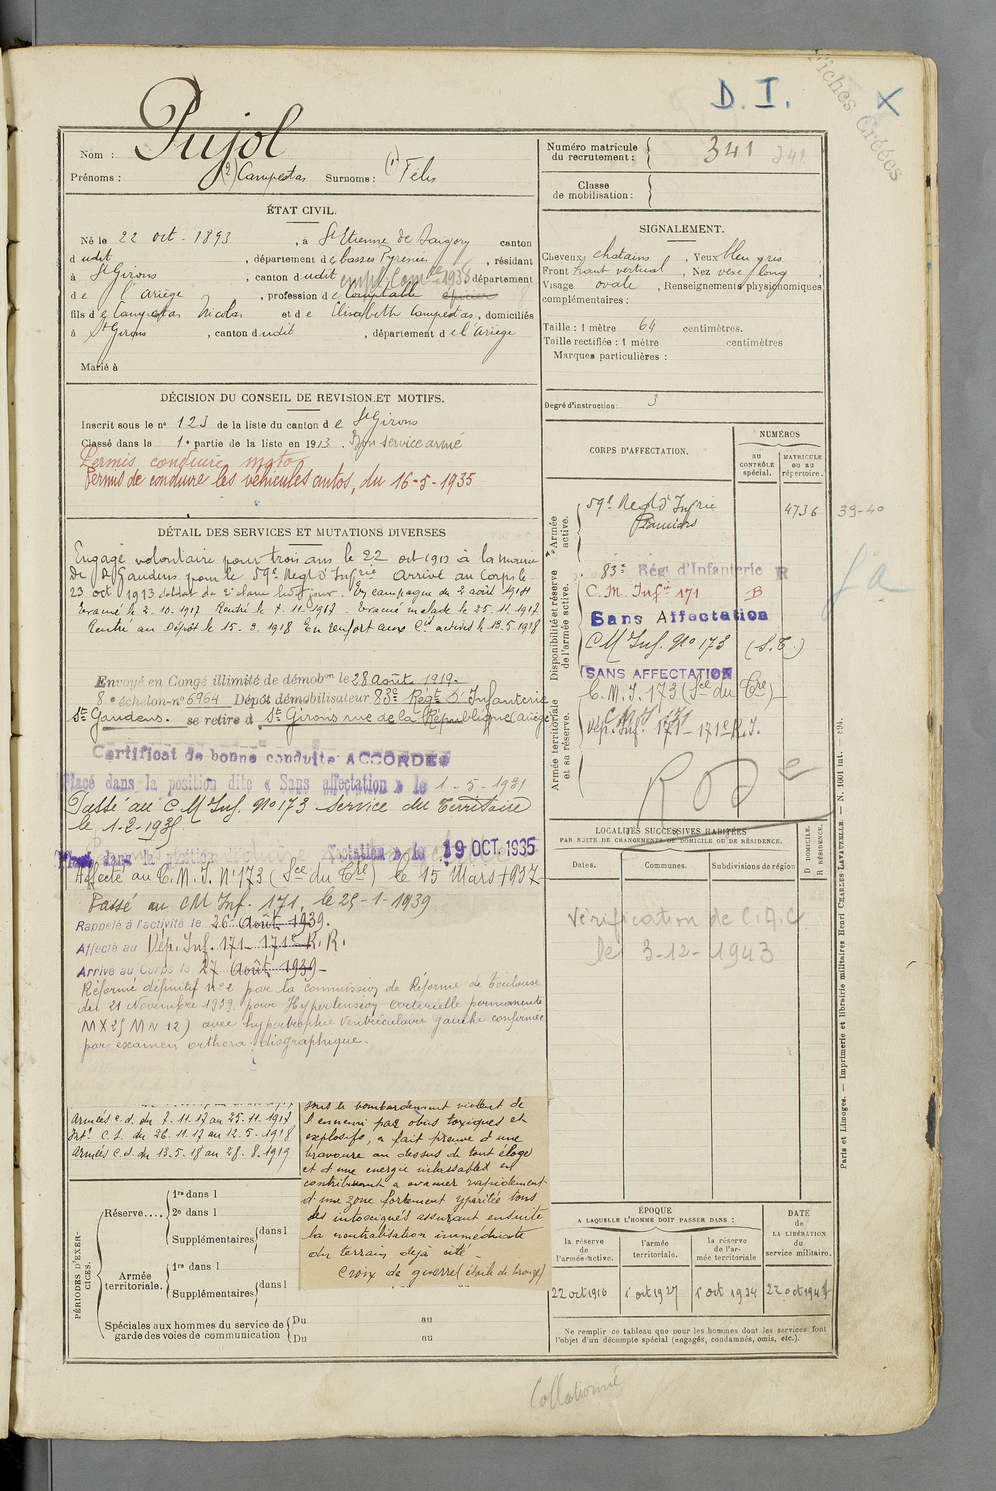 D. I.
Fiches Créées
Nom : Pujol
Prénoms : (2) Campestas Surnoms : (1) Félix
Numéro matricule du recrutement : 341
Classe de mobilisation :
ÉTAT CIVIL.
Né le 22 oct. 1893, à St Etienne de Baigory canton
dudit, département des basses Pyrénées, résidant
à St Girons, canton dudit département
de l'Ariège, profession de Comptable épicier
fils de Campestas Nicolas et de Elisabeth Campestas, domiciliés
à St Girons, canton dudit, département de l'Ariège
Marié à
SIGNALEMENT.
Cheveux chatains, Yeux bleu gris
Front haut vertical, Nez vexe long
Visage ovale, Renseignements physionomiques
complémentaires :
Taille : 1 mètre 64 centimètres.
Taille rectifiée : 1 mètre centimètres
Marques particulières :
Degré d'instruction : 3
DÉCISION DU CONSEIL DE REVISION ET MOTIFS.
Inscrit sous le n° 123 de la liste du canton de St Girons
Classé dans la 1e partie de la liste en 1913. Bon service armé
Permis conduire moto
Permis de conduire les véhicules autos, du 16-5-1935
DÉTAIL DES SERVICES ET MUTATIONS DIVERSES
Engagé volontaire pour trois ans le 22 oct 1913 à la mairie
de St Gaudens pour le 59e Regt d'Infrie Arrivé au Corps le
23 oct 1913 soldat de 2e classe ledit jour. En campagne du 2 août 1914
Evacué le 2.10.1917 Rentré le 7.11.1917. Evacué malade le 25.11.1917
Rentré au Dépôt le 15.3.1918 En renfort aux Cies actives le 13.5.1918
Envoyé en Congé illimité de démobon le 28 août 1919.
8e échelon n° 6964 Dépôt démobilisateur 83e Régt d'Infanterie
St Gaudens. se retire à St Girons rue de la République (Ariège)
Certificat de bonne conduite ACCORDÉ
Placé dans la position dite « Sans affectation » le 1-5-1931
Passé au C M Inf. No 173 Service du Territoire
le 1-2-193
Placé dans la position affectation » le 19 OCT. 1935
Affecté au C.M.I. N° 173 (Sce du Tre) le 15 Mars 1937
Passé au CM Inf. 171, le 25-1-1939
Rappelé à l'activité le 26 Août 1939.
Affecté au Dép. Inf. 171 - 171e R.R.
Arrivé au corps le 27 Août 1939-
Réformé définitif n° 2 par la Commission de Réforme de Toulouse
du 21 Novembre 1939 pour Hypertension artérielle permanente
avec hypertrophie ventriculaire gauche confirmée
par examen orthoradiographique.
Armées c.d. du 7.11.17 au 25.11.1917
Intr C.S. du 26.11.17 au 12.5.1918
Armées c.d. du 13.5.18 au 28.8.1919
sous le bombardement violent de
l'ennemi par obus toxiques et
explosifs, a fait preuve d'une
bravoure au dessus de tout éloge
et d'une énergie inlassable en
contribuant à évacuer rapidement
d'une zone fortement ypéritée tous
les intoxiqués assurant ensuite
la neutralisation immédiate
du terrain déjà cité -
Croix de guerre (étoile de bronze)
PÉRIODES D'EXERCICES.
Réserve.... 1re dans l
2e dans l
Supplémentaires dans l
Armée territoriale. 1re dans l
Supplémentaires dans l
Spéciales aux hommes du service de garde des voies de communication Du au
Du au
CORPS D'AFFECTATION.
NUMÉROS
au CONTRÔLE spécial.
MATRICULE ou au répertoire.
Armée active.
59e Regt d'Infrie Pamiers 4736
39-40
Disponibilité et réserve de l'armée active.
83e Rég d'Infanterie R
C.M. Infie 171 B
Sans Affectation
CM Inf. No 173 (S.T.)
Armée territoriale et sa réserve.
SANS AFFECTATION
C.M.I. 173 (Sce du Tre)
Dép. Inf. 171 - 171e R.I.
LOCALITÉS SUCCESSIVES HABITÉES
PAR SUITE DE CHANGEMENTS DE DOMICILE OU DE RÉSIDENCE.
Dates. Communes. Subdivisions de région D DOMICILE. R RÉSIDENCE.
Vérification de C.A.C
le 3-12-1943
ÉPOQUE
A LAQUELLE L'HOMME DOIT PASSER DANS :
la réserve de l'armée active. l'armée territoriale. la réserve de l'armée territoriale
DATE de LA LIBÉRATION du service militaire.
22 oct 1916 1 oct 1927 1 oct 1934
Ne remplir ce tableau que pour les hommes dont les services font
l'objet d'un décompte spécial (engagés, condamnés, omis, etc.).
Paris et Limoges. — Imprimerie et librairie militaires Henri CHARLES-LAVAUZELLE.
Collationné